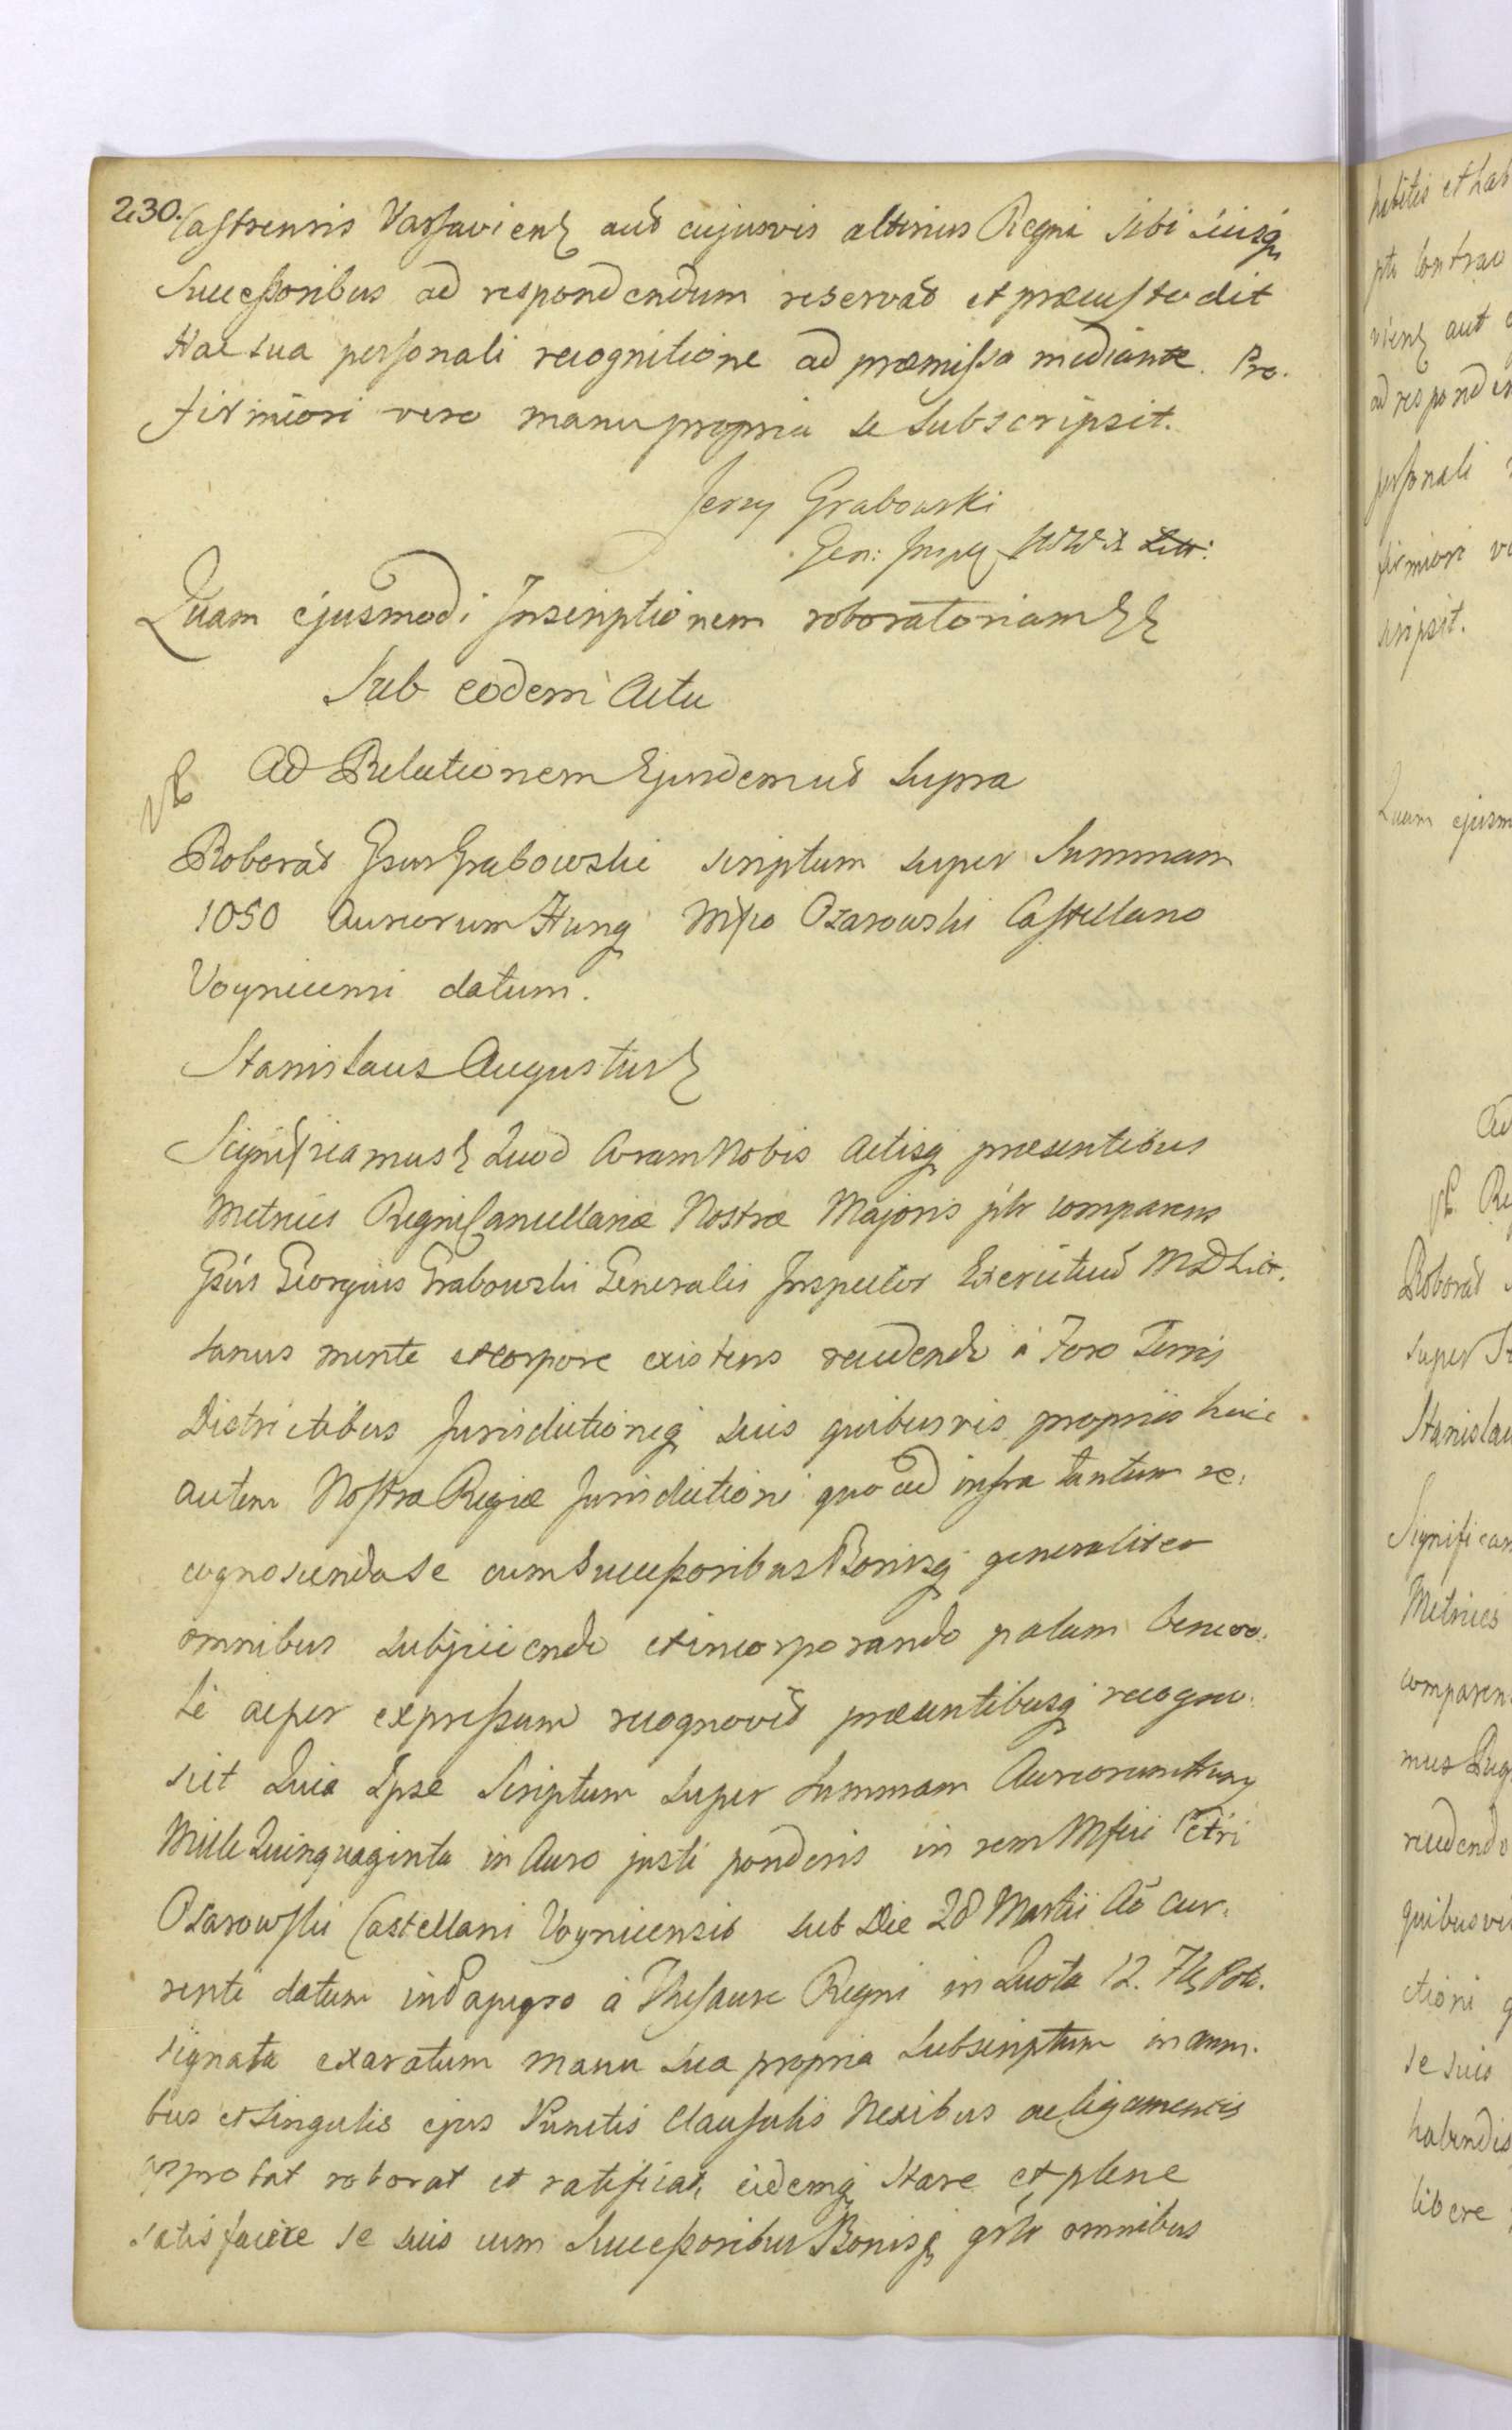 230.
Castrensis Varsavien aut cujusvis alterius Regni sibi suisq
Succeßoribus ad respondendum reservat et præcustodit
Hac sua personali recognitione ad præmissa mediante. Pro.
firmiori vero manu propria se subscripsit.
Jerzy Grabowski
Gen: Insp WWX Litt:
Quam ejusmodi Inscriptionem roboratoriam
Sub eodem Actu
Ad Relationem Ejusdem ut supra
Roborat Gsus Grabowski scriptum super Summam
1050 Aureorum Hung Mfco Ozarowski Castellano
Voynicensi datum.
Stanislaus Augustus
Significamus Quod Coram Nobis Actisq præsentibus
Metrices Regni Cancellariæ Nostræ Majoris plr comparens
Gsus Georgius Grabowski Generalis Inspector Exercituu MDLitt.
sanus mente et corpore existens recedendo à Foro Terris
Districtibus Jurisdictioneq suis quibusvis propriis huic
autem Nostræ Regiæ Jurisdictioni quo ad infra tantum re.
cognoscenda se cum Succeßoribus Bonisq generaliter
omnibus subjiciendo et incorporando palam benevo.
le ac per expreßum recognovit præsentibusq recogno.
scit Quia Ipse Scriptum super Summam Aureorum Hung
Mille Quinquaginta in Auro justi ponderis in rem Mfici Petri
Ozarowski Castellani Voynicensis sub Die 28 Martii Aō cur.
rente datum in à Thesauro Regni in Quota 12.
signata exaratum manu sua propria subscriptum in omni.
bus et singulis ejus Punctis Clausulis Nexibus ac ligamentis
approbat roborat et ratificat, eidemq stare et plene
satisfacere se suis cum Succeßoribus Bonisq gnlr omnibus
habitis et hab
aut
ad responden
personali
firmiori ve
scripsit.
Quam ejusm
Ad
Re
Roborat
super
Stanislau
Significam
Metrices
comparens
recedendo
quibusvis
ctioni q
se suis
habendis
libere